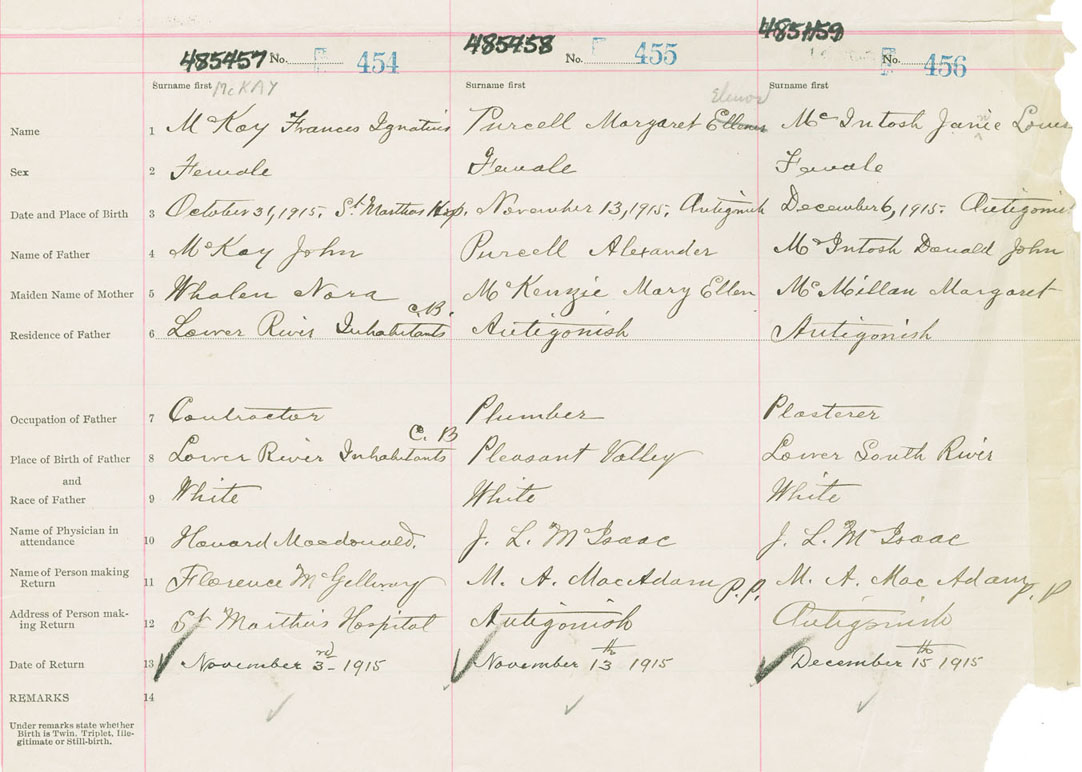 485457 No. 454 485458 No. 455 485459 No. 456
Surname first McKAY Surname first Surname first
Elenor
Name 1 McKay Frances Ignatius Purcell Margaret Ellenor McIntosh Janie Louis
Sex 2 Female Female Female
Date and Place of Birth 3 October 31, 1915. St. Marthas Hosp. November 13, 1915. Antigonish December 6, 1915. Antigonis
Name of Father 4 McKay John Purcell Alexander McIntosh Donald John
Maiden Name of Mother 5 Whalen Nora McKenzie Mary Ellen McMillan Margaret
C.B.
Residence of Father 6 Lower River Inhabitants Antigonish Antigonish
Occupation of Father 7 Contractor Plumber Plasterer
C. B
Place of Birth of Father 8 Lower River Inhabitants Pleasant Valley Lower South River
and
Race of Father 9 White White White
Name of Physician in
attendance 10 Howard Macdonald. J. L. McIsaac J. L. McIsaac
Name of Person making
Return 11 Florence McGellivary M. A. MacAdam P.P. M. A. MacAdam P.P
Address of Person mak-
ing Return 12 St Martha's Hospital Antigonish Antigonish
Date of Return 13 November 3rd 1915 November 13th 1915 December 15th 1915
REMARKS 14
Under remarks state whether
Birth is Twin. Triplet, Ille-
gitimate or Still-birth.